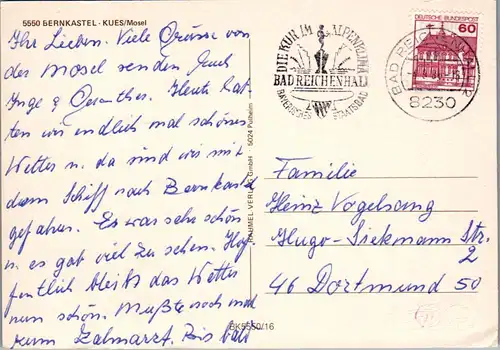 5550 BERNKASTEL - KUES/Mosel
Ihr Lieben. Viele Grüsse von
der Mosel senden Euch
Inge & Günther. Heute hat-
ten wir endlich mal schönes
Wetter u. da sind wir mit
dem Schiff nach Bernkastel
gefahren. Es war sehr schön
u. es gab viel zu sehen. Hof
fentlich bleibt das Wetter
nun schön. Mußte noch mal
zum Zahnarzt. Bis bald
RAHMEL VERLAG GmbH 5024 Pulheim
BK5550/16
DIE KUR IM ALPENKLIMA
BAD REICHENHALL
BAYERISCHES STAATSBAD
DEUTSCHE BUNDESPOST
60
BAD REICHENHALL
8230
Familie
Heinz Vogelsang
Hugo-Siekmann Str.
2
46 Dortmund 50